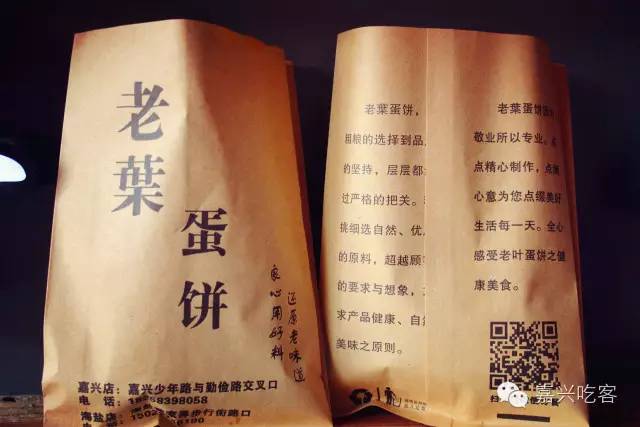 老葉
蛋饼
还原老味道
良心用好料
嘉兴店：嘉兴少年路与勤俭路交叉口
电 话：18258398058
海盐店：
步行街路口
老葉蛋饼，
粗粮的选择到品
的坚持，层层都
过严格的把关。
挑细选自然、优
的原料，超越顾
的要求与想象，
求产品健康、自然
美味之原则。
老葉蛋饼
敬业所以专业。
点精心制作，点
心意为您点缀美好
生活每一天。全心
感受老叶蛋饼之健
康美食。
嘉兴吃客